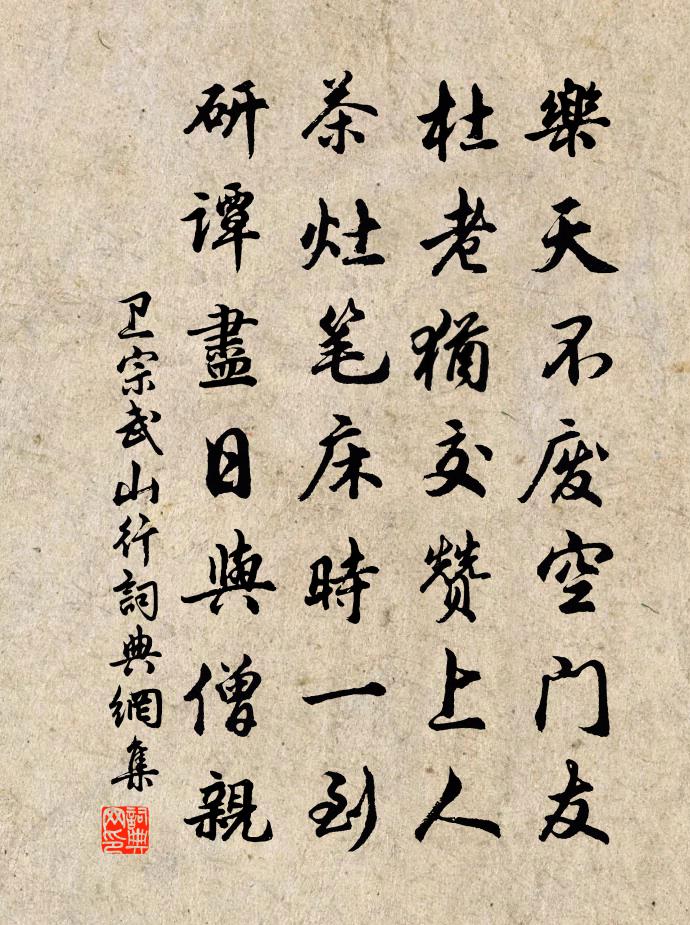 樂天不废空门友
杜老猶交赞上人
茶灶笔床時一到
研谭盡日與僧親
卫宗武山行詞典網集
詞典网印